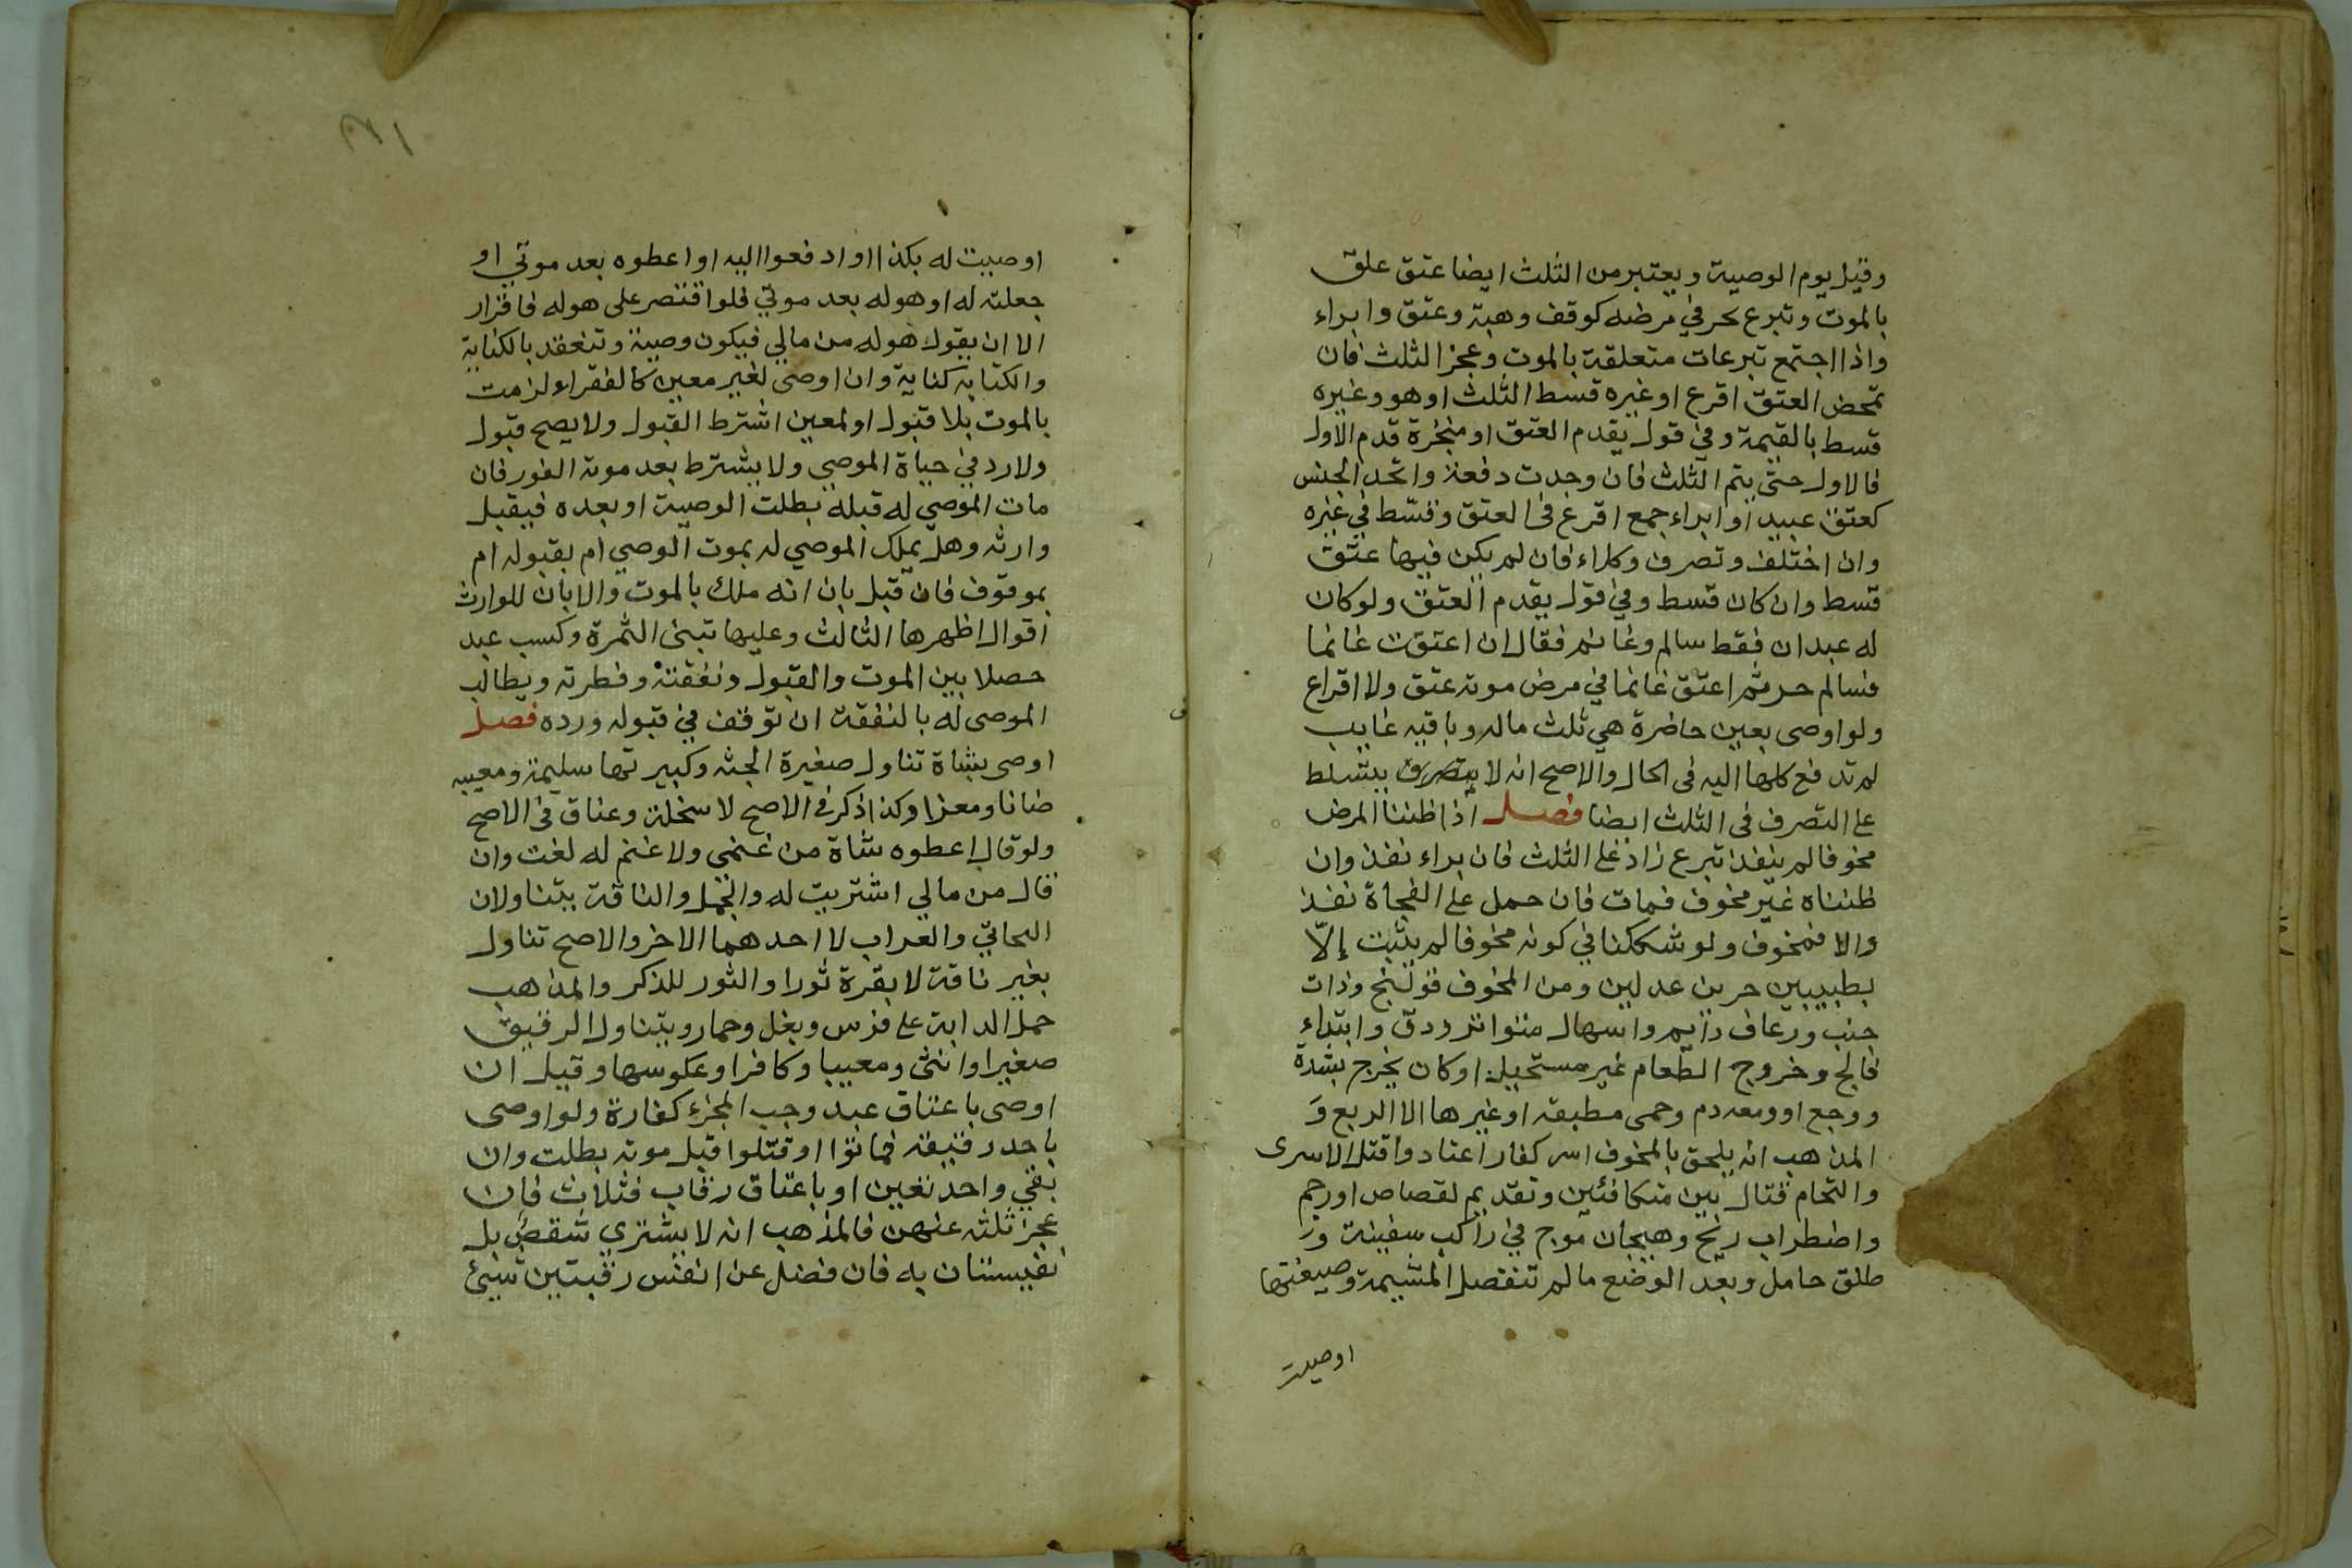 وقيل يوم الوصية ويعتبر من الثلث ايضا عتق علق
بالموت وتبرع نحر في مرضه كوقف وهبة وعتق وابراء
واذا اجتمع تبرعات متعلقة بالموت وعجز الثلث فان
تمحض العتق اقرع او غيره قسط الثلث او هو وغيره
قسط بالقيمة وفي قول يقدم العتق او منجزة قدم الاول
فالاول حتى يتم الثلث فان وجدت دفعة واتحد الجنس
كعتق عبيد او ابراء جمع اقرع في العتق وقسّط في غيره
وان اختلف وتصرف وكلاء فان لم يكن فيها عتق
قسط وان كان قسط وفي قول يقدم العتق ولو كان
له عبدان فقط سالم وغانم فقال ان اعتقت غانما
فسالم حر ثم اعتق غانما في مرض موته عتق ولا اقراع
ولو اوصى بعين حاضرة هي ثلث ماله وباقيه غايب
لم تدفع كلها اليه في الحال والاصح انه لا يتصرف يتسلط
على التصرف في الثلث ايضا فصل اذا ظننا المرض
مخوفا لم ينفذ تبرع زاد على الثلث فان براء نفذ وان
ظنناه غير مخوف فمات فان حمل على الفجاة نفذ
والا فمخوف ولو شككنا في كونه مخوفا لم يثبت إلّا
بطبيبين حرين عدلين ومن المخوف قولنج وذات
جنب ورعاف دايم واسهال متواتر ودق وابتداء
فالج وخروج الطعام غير مستحيل او كان يخرج بشدة
ووجع او ومعه دم وحمى مطبقة او غيرها الا الربع وَ
المذهب انه يلحق بالمخوف اسر كفار اعتادوا قتل الاسرى
والتحام قتال بين متكافئين وتقديم لقصاص او رجم
واضطراب ريح وهيجان موج في راكب سفينة وَ
طلق حامل وبعد الوضع ما لم تنفصل المشيمة وصيغتها
اوصيت
اوصيت له بكذا او ادفعوا اليه او اعطوه بعد موتي او
جعلته له او هو له بعد موتي فلو اقتصر على هو له فاقرار
الا ان يقول هو له من مالي فيكون وصية وتنعقد بالكناية
والكتابة كناية وان اوصى لغير معين كالفقراء لزمت
بالموت بلا قبول او لمعين اشترط القبول ولا يصح قبول
ولا رد في حياة الموصي ولا يشترط بعد موته الفور فان
مات الموصي له قبله بطلت الوصية او بعده فيقبل
وارثه وهل يملك الموصي له بموت الوصي ام بقبوله ام
بموقوف فان قبل بان انه ملك بالموت والا بان للوارث
اقوال اظهرها الثالث وعليها تبنى الثمرة وكسب عبد
حصلا بين الموت والقبول ونفقته وفطرته ويطالب
الموصى له بالنفقة ان توقف في قبوله ورده فصل
اوصى بشاة تناول صغيرة الجثه وكبيرتها سليمة ومعيبه
ضانا ومعزا وكذا ذكر في الاصح لا سخلة وعناق في الاصح
ولو قال اعطوه شاة من غنمي ولا غنم له لغت وان
قال من مالي اشتريت له والجمل والناقة يتناولان
البخاتي والعراب لا احدهما الاخر والاصح تناول
بغير ناقة لا بقرة ثورا والثور للذكر والمذهب
حمل الدابة على فرس وبغل وحمار ويتناول الرقيق
صغيرا وانثى ومعيبا وكافرا وعكوسها وقيل ان
اوصى باعتاق عبد وجب المجزء كفارة ولو اوصى
باحد رقيقه فماتوا او قتلوا قبل موته بطلت وان
بقي واحد تعين او باعتاق رقاب فثلاث فان
عجز ثلثه عنهن فالمذهب انه لا يشتري شقص بل
نفيستان به فان فضل عن انفس رقبتين شيئ